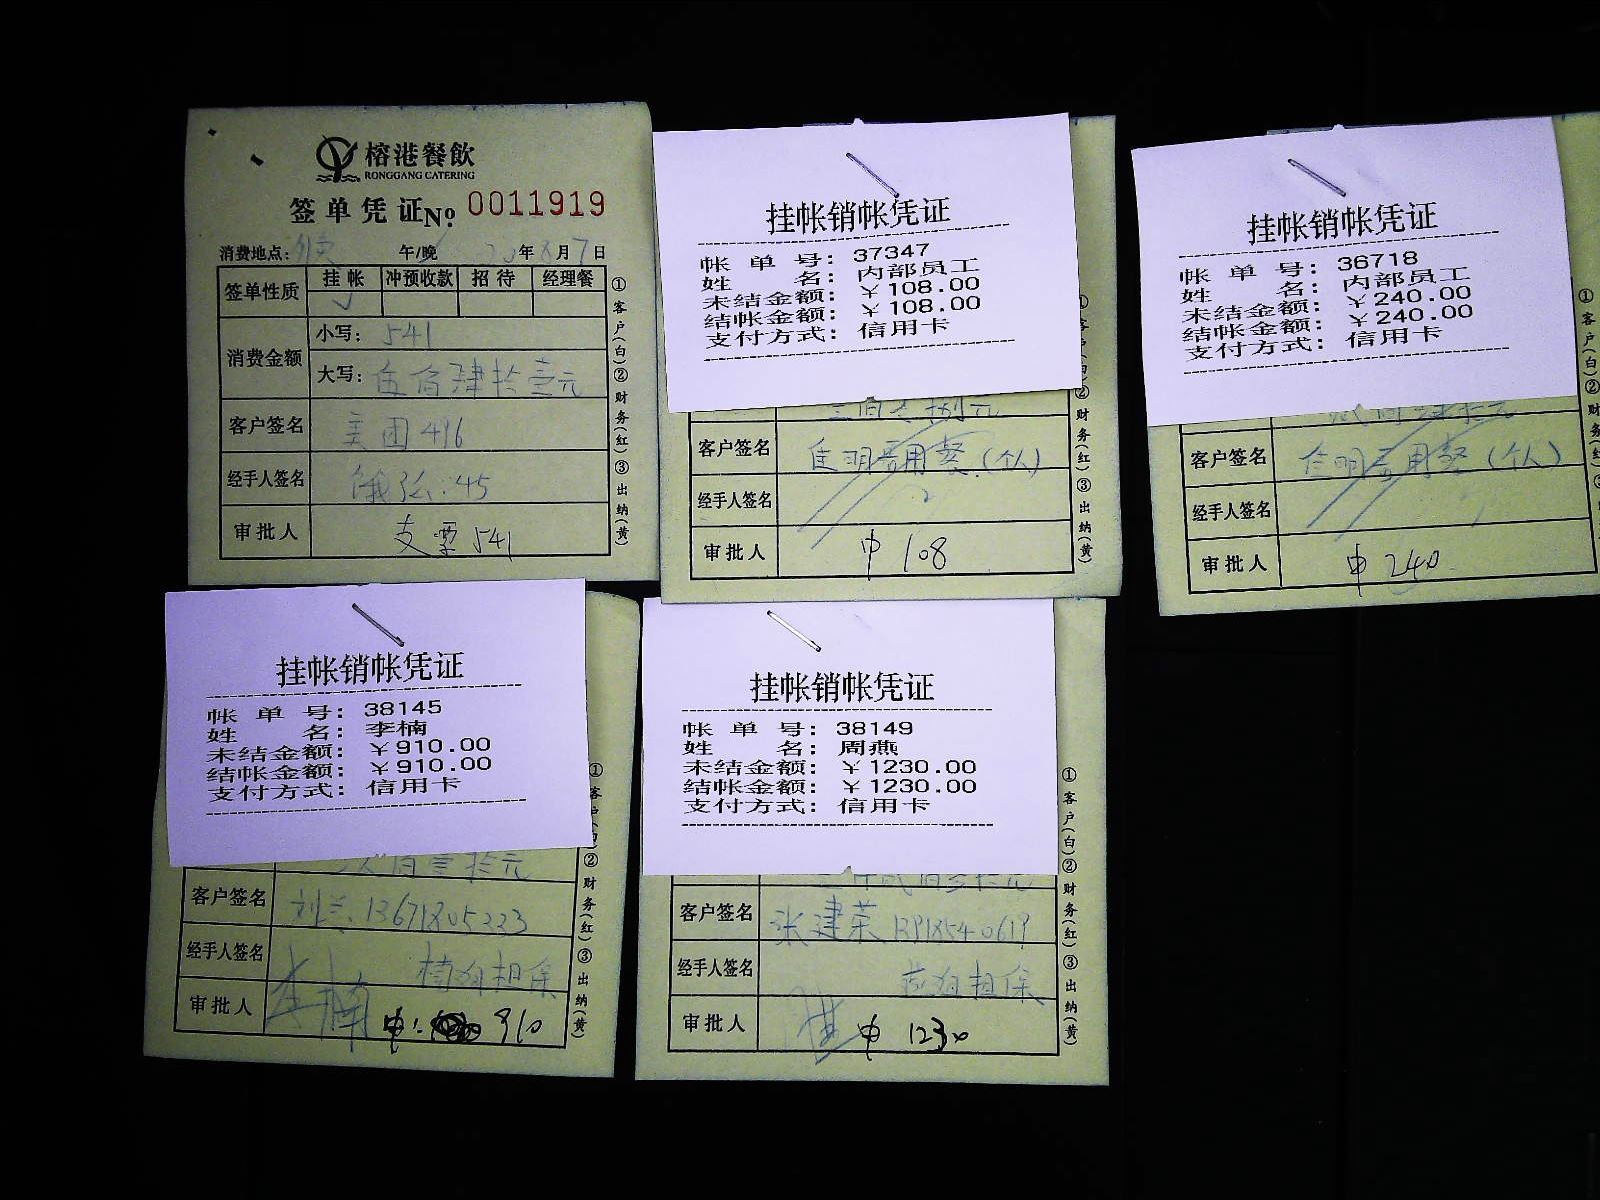 榕港餐飲
RONGGANG CATERING
签单凭证 No. 0011919
消费地点: 外卖 午/晚 20年8月7日
签单性质 挂帐 冲预收款 招待 经理餐
√
消费金额 小写: 541
大写: 伍佰肆拾壹元
客户签名 美团496
经手人签名 饿 45
审批人 支票541
①客户(白)②财务(红)③出纳(黄)
挂帐销帐凭证
帐单号: 37347
姓名: 内部员工
未结金额: ￥108.00
结帐金额: ￥108.00
支付方式: 信用卡
客户签名 用餐(个人)
经手人签名
审批人 中 108
客户(白)②财务(红)③出纳(黄)
挂帐销帐凭证
帐单号: 36718
姓名: 内部员工
未结金额: ￥240.00
结帐金额: ￥240.00
支付方式: 信用卡
客户签名 用餐(个人)
经手人签名
审批人 中 240
①客户(白)②财务
挂帐销帐凭证
帐单号: 38145
姓名: 李楠
未结金额: ￥910.00
结帐金额: ￥910.00
支付方式: 信用卡
佰壹拾元
客户签名 刘兰 13671805223
经手人签名 楠姐担保
审批人 李楠 中: 910
①客户(白)②财务(红)③出纳(黄)
挂帐销帐凭证
帐单号: 38149
姓名: 周燕
未结金额: ￥1230.00
结帐金额: ￥1230.00
支付方式: 信用卡
客户签名 张建荣
经手人签名 担保
审批人 中 1230
①客户(白)②财务(红)③出纳(黄)